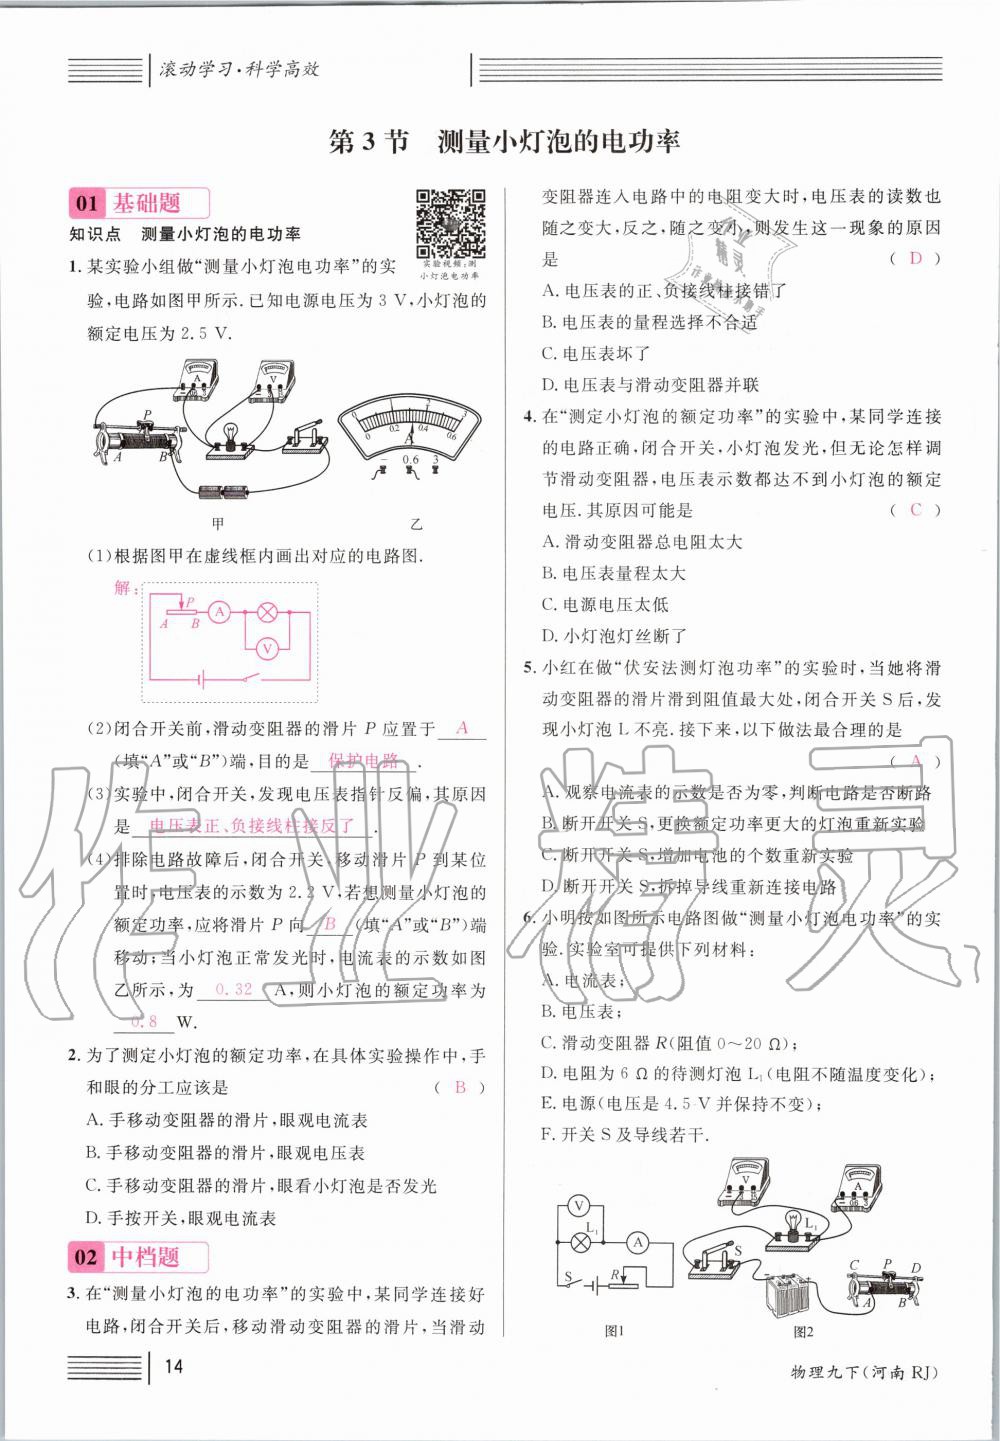 滚动学习·科学高效
第 3 节 测量小灯泡的电功率
01 基础题
实验视频:测
小灯泡电功率
知识点 测量小灯泡的电功率
1. 某实验小组做“测量小灯泡电功率”的实
验,电路如图甲所示.已知电源电压为 3 V,小灯泡的
额定电压为 2.5 V.
A V
P
A B
甲
0 1 2 3
0 0.2 0.4 0.6
A
- 0.6 3
乙
(1)根据图甲在虚线框内画出对应的电路图.
解:
P
A B A
V
(2)闭合开关前,滑动变阻器的滑片 P 应置于 A
(填“A”或“B”)端,目的是 保护电路 .
(3)实验中,闭合开关,发现电压表指针反偏,其原因
是 电压表正、负接线柱接反了 .
(4)排除电路故障后,闭合开关,移动滑片 P 到某位
置时,电压表的示数为 2.2 V,若想测量小灯泡的
额定功率,应将滑片 P 向 B (填“A”或“B”)端
移动;当小灯泡正常发光时,电流表的示数如图
乙所示,为 0.32 A,则小灯泡的额定功率为
0.8 W.
2. 为了测定小灯泡的额定功率,在具体实验操作中,手
和眼的分工应该是 ( B )
A. 手移动变阻器的滑片,眼观电流表
B. 手移动变阻器的滑片,眼观电压表
C. 手移动变阻器的滑片,眼看小灯泡是否发光
D. 手按开关,眼观电流表
02 中档题
3. 在“测量小灯泡的电功率”的实验中,某同学连接好
电路,闭合开关后,移动滑动变阻器的滑片,当滑动
变阻器连入电路中的电阻变大时,电压表的读数也
随之变大,反之,随之变小,则发生这一现象的原因
是 ( D )
A. 电压表的正、负接线柱接错了
B. 电压表的量程选择不合适
C. 电压表坏了
D. 电压表与滑动变阻器并联
4. 在“测定小灯泡的额定功率”的实验中,某同学连接
的电路正确,闭合开关,小灯泡发光,但无论怎样调
节滑动变阻器,电压表示数都达不到小灯泡的额定
电压.其原因可能是 ( C )
A. 滑动变阻器总电阻太大
B. 电压表量程太大
C. 电源电压太低
D. 小灯泡灯丝断了
5. 小红在做“伏安法测灯泡功率”的实验时,当她将滑
动变阻器的滑片滑到阻值最大处,闭合开关 S 后,发
现小灯泡 L 不亮.接下来,以下做法最合理的是
( A )
A. 观察电流表的示数是否为零,判断电路是否断路
B. 断开开关 S,更换额定功率更大的灯泡重新实验
C. 断开开关 S,增加电池的个数重新实验
D. 断开开关 S,拆掉导线重新连接电路
6. 小明按如图所示电路图做“测量小灯泡电功率”的实
验.实验室可提供下列材料:
A. 电流表;
B. 电压表;
C. 滑动变阻器 R(阻值 0～20 Ω);
D. 电阻为 6 Ω 的待测灯泡 L₁(电阻不随温度变化);
E. 电源(电压是 4.5 V 并保持不变);
F. 开关 S 及导线若干.
V
L₁ A
S R
图1
V A
- 0.6 3
L₁
S
C P D
A B
图2
14
物理九下(河南 RJ)
作业精灵